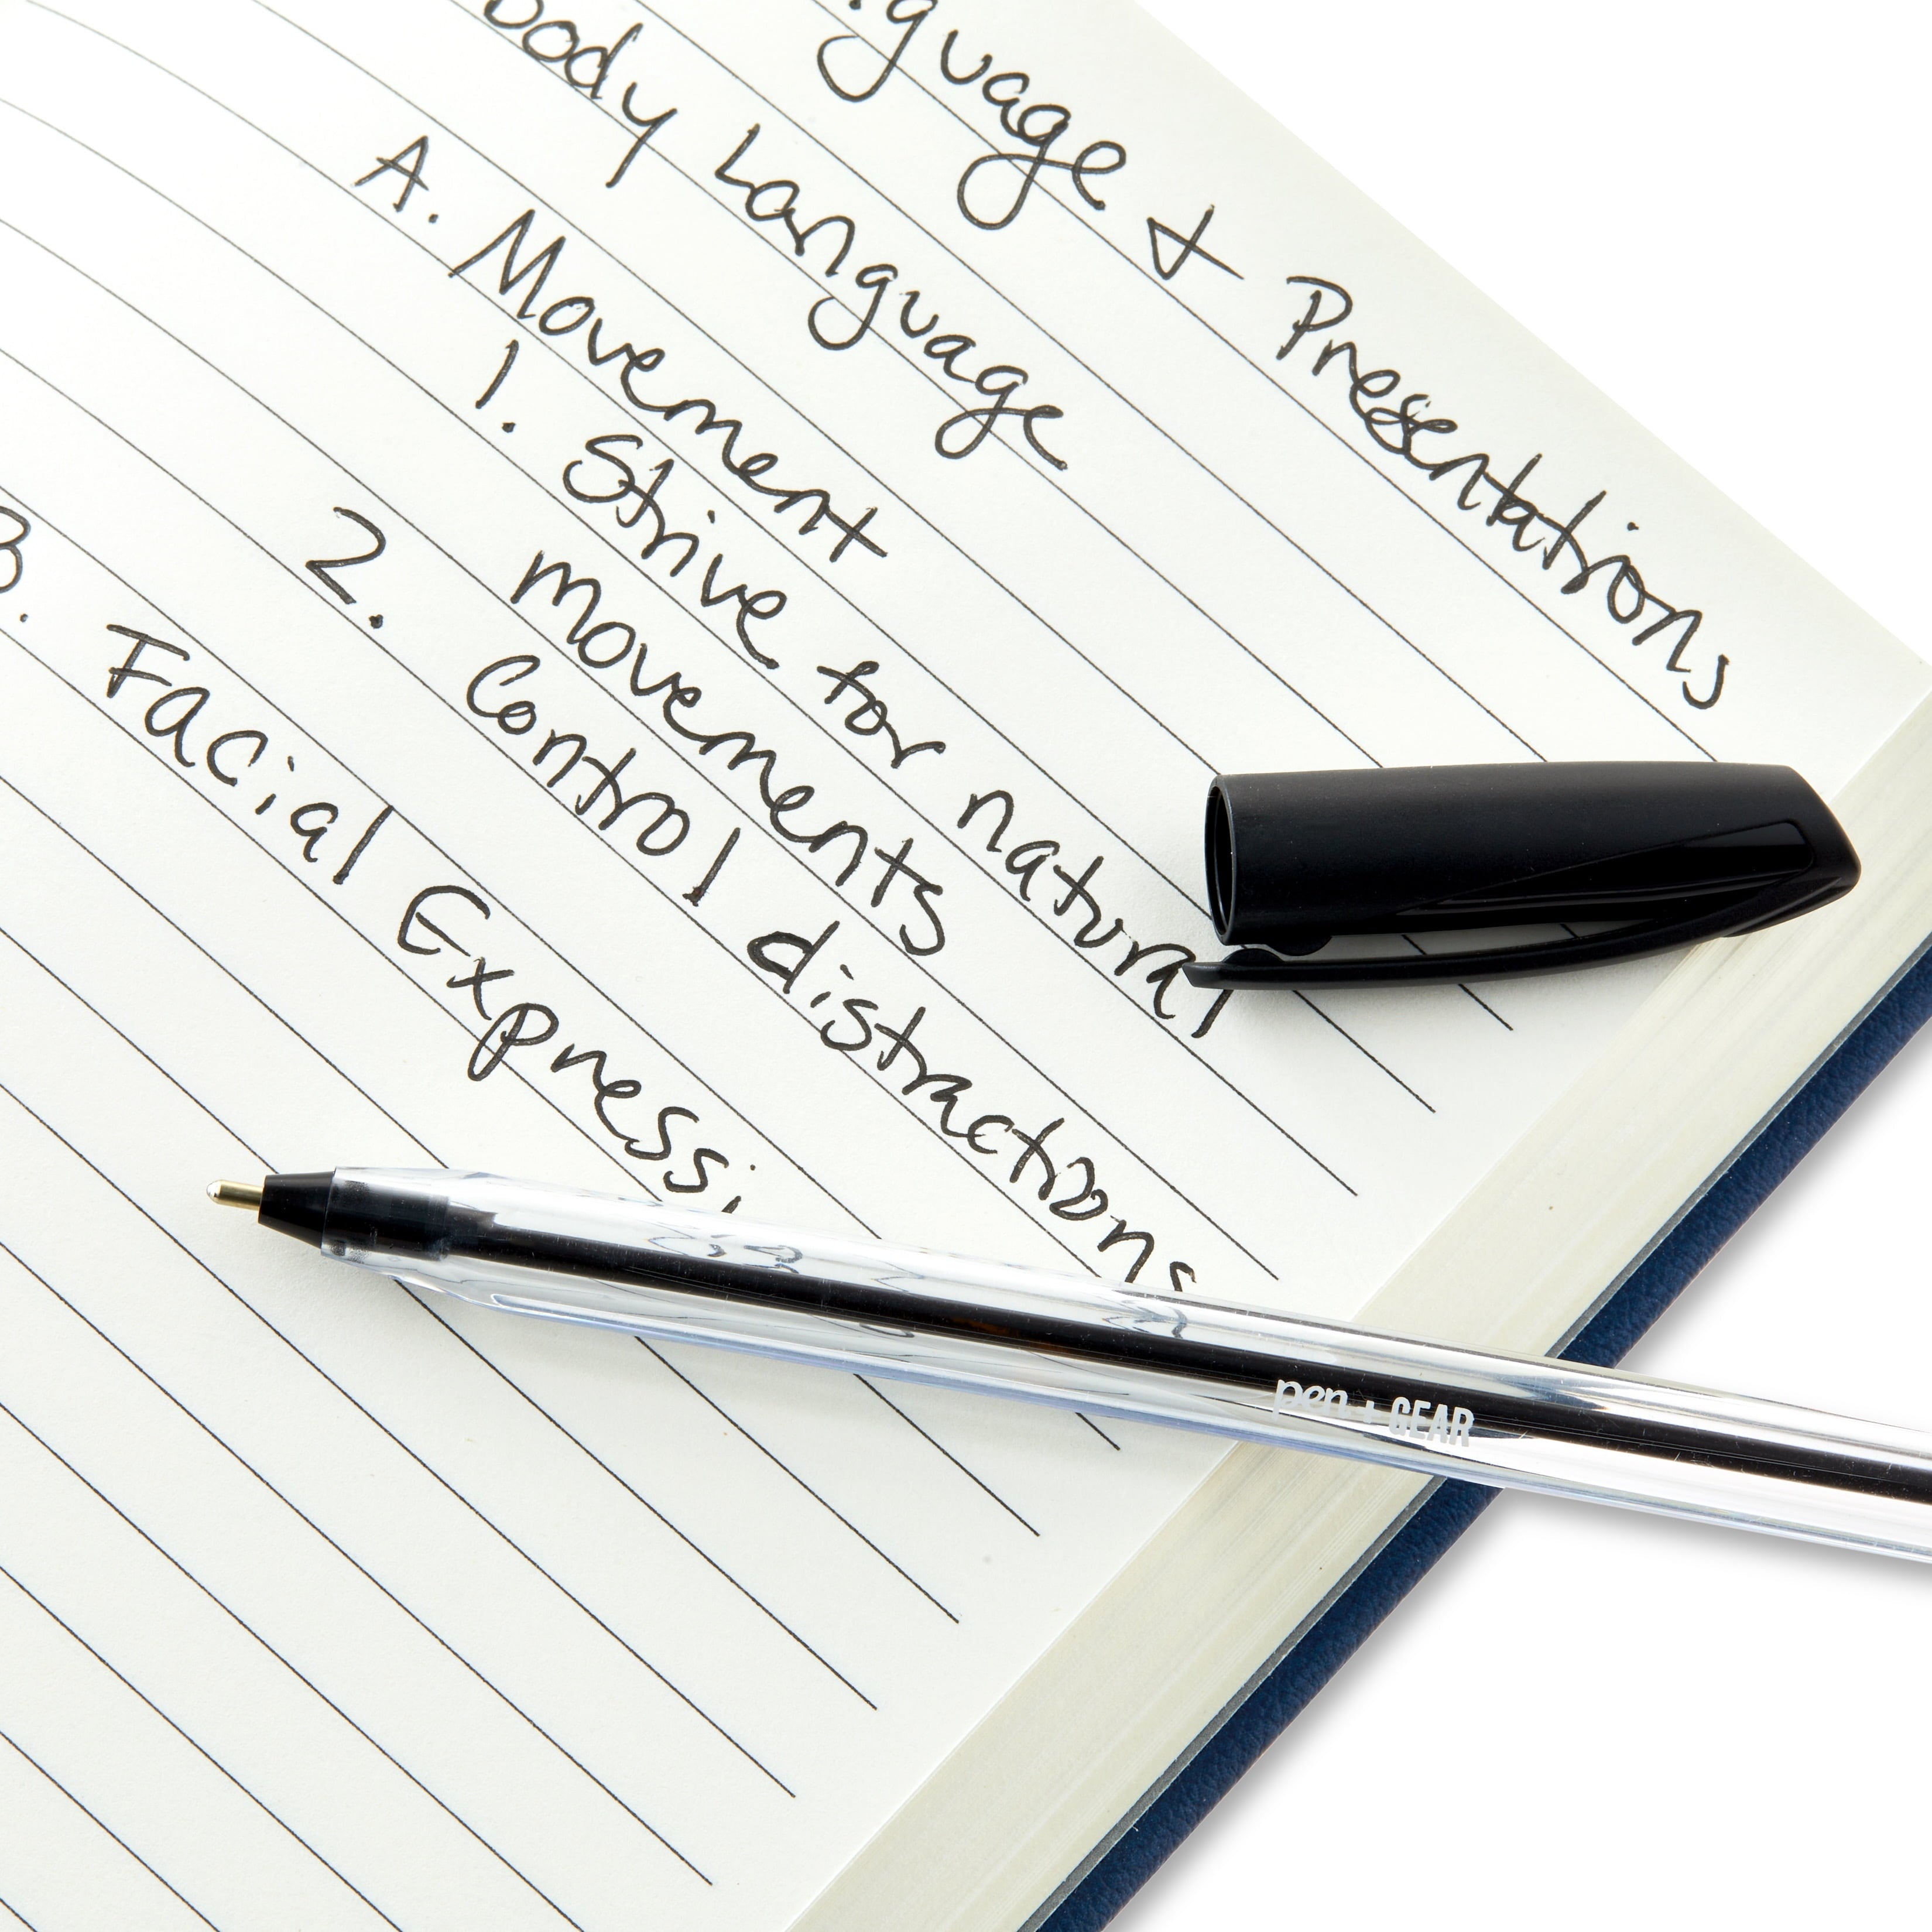 guage + Presentations
body Language
A. Movement
1. Strive for natural
movements
2. Control distractions
B. Facial Expressi
pen + GEAR